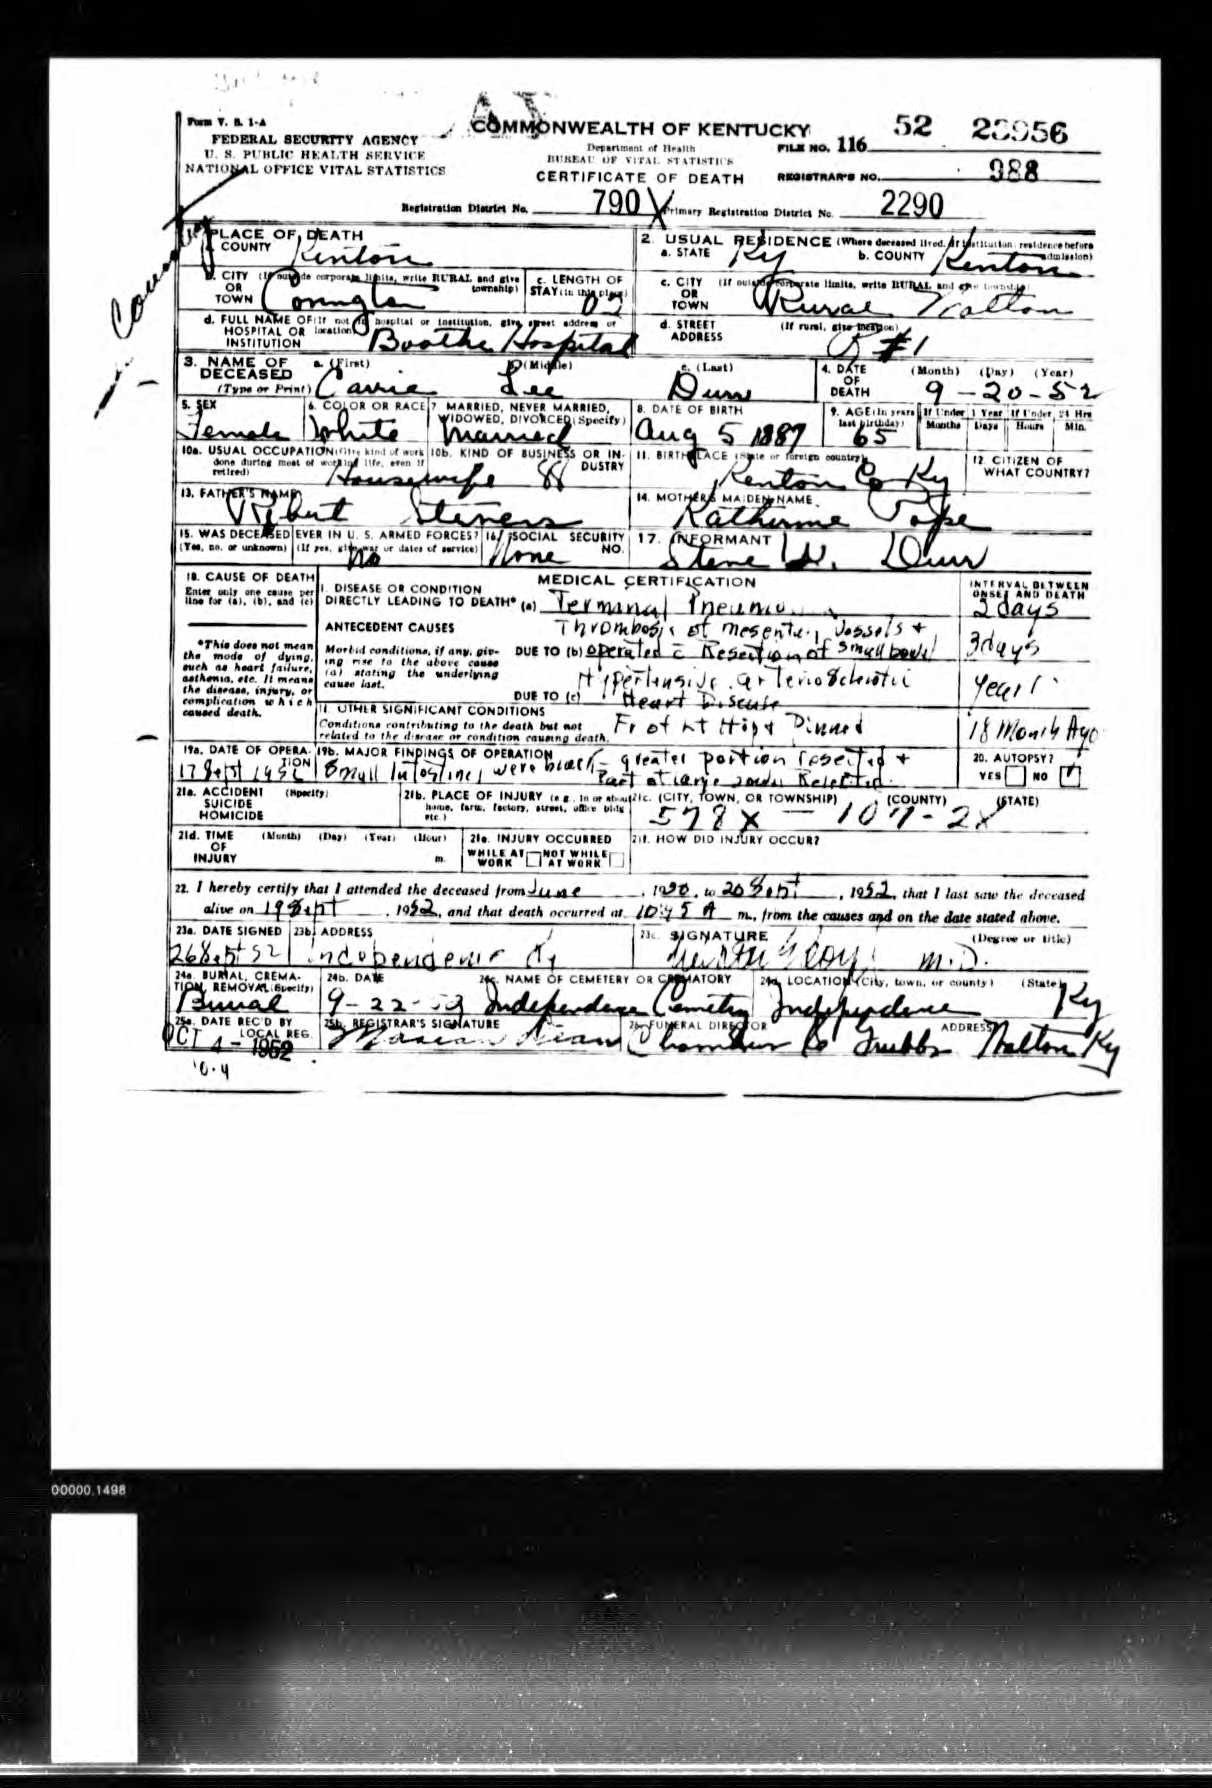 Form V. S. 1-A
FEDERAL SECURITY AGENCY
U. S. PUBLIC HEALTH SERVICE
NATIONAL OFFICE VITAL STATISTICS
COMMONWEALTH OF KENTUCKY
Department of Health
BUREAU OF VITAL STATISTICS
CERTIFICATE OF DEATH
FILE NO. 116 52
REGISTRAR'S NO. 988
Registration District No. 790 X Primary Registration District No. 2290
County
PLACE OF DEATH
COUNTY Kenton
2. USUAL RESIDENCE (Where deceased lived. If institution: residence before admission)
a. STATE Ky b. COUNTY Kenton
b. CITY (If outside corporate limits, write RURAL and give township)
OR
TOWN Covington
c. LENGTH OF
STAY (in this place)
c. CITY (If outside corporate limits, write RURAL and give township)
OR
TOWN Rural Walton
d. FULL NAME OF (If not in hospital or institution, give street address or location)
HOSPITAL OR
INSTITUTION Booths Hospital
d. STREET (If rural, give location)
ADDRESS R #1
3. NAME OF DECEASED
(Type or Print)
a. (First) Carrie
b. (Middle) Lee
c. (Last) Durr
4. DATE OF DEATH (Month) (Day) (Year)
9-20-52
5. SEX Female
6. COLOR OR RACE White
7. MARRIED, NEVER MARRIED, WIDOWED, DIVORCED (Specify) Married
8. DATE OF BIRTH Aug 5 1887
9. AGE (In years last birthday) 65
If Under 1 Year Months Days
If Under 24 Hrs Hours Min.
10a. USUAL OCCUPATION (Give kind of work done during most of working life, even if retired) Housewife
10b. KIND OF BUSINESS OR INDUSTRY
11. BIRTHPLACE (State or foreign country) Kenton Co Ky
12. CITIZEN OF WHAT COUNTRY?
13. FATHER'S NAME Robert Stevens
14. MOTHER'S MAIDEN NAME Katherine Pope
15. WAS DECEASED EVER IN U. S. ARMED FORCES?
(Yes, no, or unknown) (If yes, give war or dates of service) No
16. SOCIAL SECURITY NO. None
17. INFORMANT Steve H. Durr
18. CAUSE OF DEATH
Enter only one cause per line for (a), (b), and (c)
*This does not mean the mode of dying, such as heart failure, asthenia, etc. It means the disease, injury, or complication which caused death.
MEDICAL CERTIFICATION
INTERVAL BETWEEN ONSET AND DEATH
I. DISEASE OR CONDITION
DIRECTLY LEADING TO DEATH* (a) Terminal 2 days
ANTECEDENT CAUSES
Morbid conditions, if any, giving rise to the above cause (a) stating the underlying cause last.
Thrombosis of Mesentery Vessels +
DUE TO (b) operated c Resection of small bowel 3 days
Hypertensive arteriosclerotic
DUE TO (c) Heart Disease
II. OTHER SIGNIFICANT CONDITIONS
Conditions contributing to the death but not related to the disease or condition causing death.
Fr of Rt Hip + Pinned 18 Months Ago
19a. DATE OF OPERATION 17 Sept 1952
19b. MAJOR FINDINGS OF OPERATION
Small Intestines were black - greater portion resected +
Part of large
20. AUTOPSY?
YES NO ✓
21a. ACCIDENT (Specify)
SUICIDE
HOMICIDE
21b. PLACE OF INJURY (e.g., in or about home, farm, factory, street, office bldg. etc.)
21c. (CITY, TOWN, OR TOWNSHIP) (COUNTY) (STATE)
578X
21d. TIME (Month) (Day) (Year) (Hour)
OF
INJURY m.
21e. INJURY OCCURRED
WHILE AT WORK NOT WHILE AT WORK
21f. HOW DID INJURY OCCUR?
22. I hereby certify that I attended the deceased from June, 1950, to 20 Sept, 1952, that I last saw the deceased
alive on 19 Sept, 1952, and that death occurred at 10:45 A m., from the causes and on the date stated above.
23a. DATE SIGNED 26 Sept 52
23b. ADDRESS Independence Ky
23c. SIGNATURE (Degree or title) M.D.
24a. BURIAL, CREMATION, REMOVAL (Specify) Burial
24b. DATE 9-22-52
24c. NAME OF CEMETERY OR CREMATORY Independence Cemetery
24d. LOCATION (City, town, or county) (State) Independence Ky
25a. DATE REC'D BY LOCAL REG. OCT 4-1952
25b. REGISTRAR'S SIGNATURE
26. FUNERAL DIRECTOR ADDRESS Chambers & Grubbs Walton Ky
00000.1498